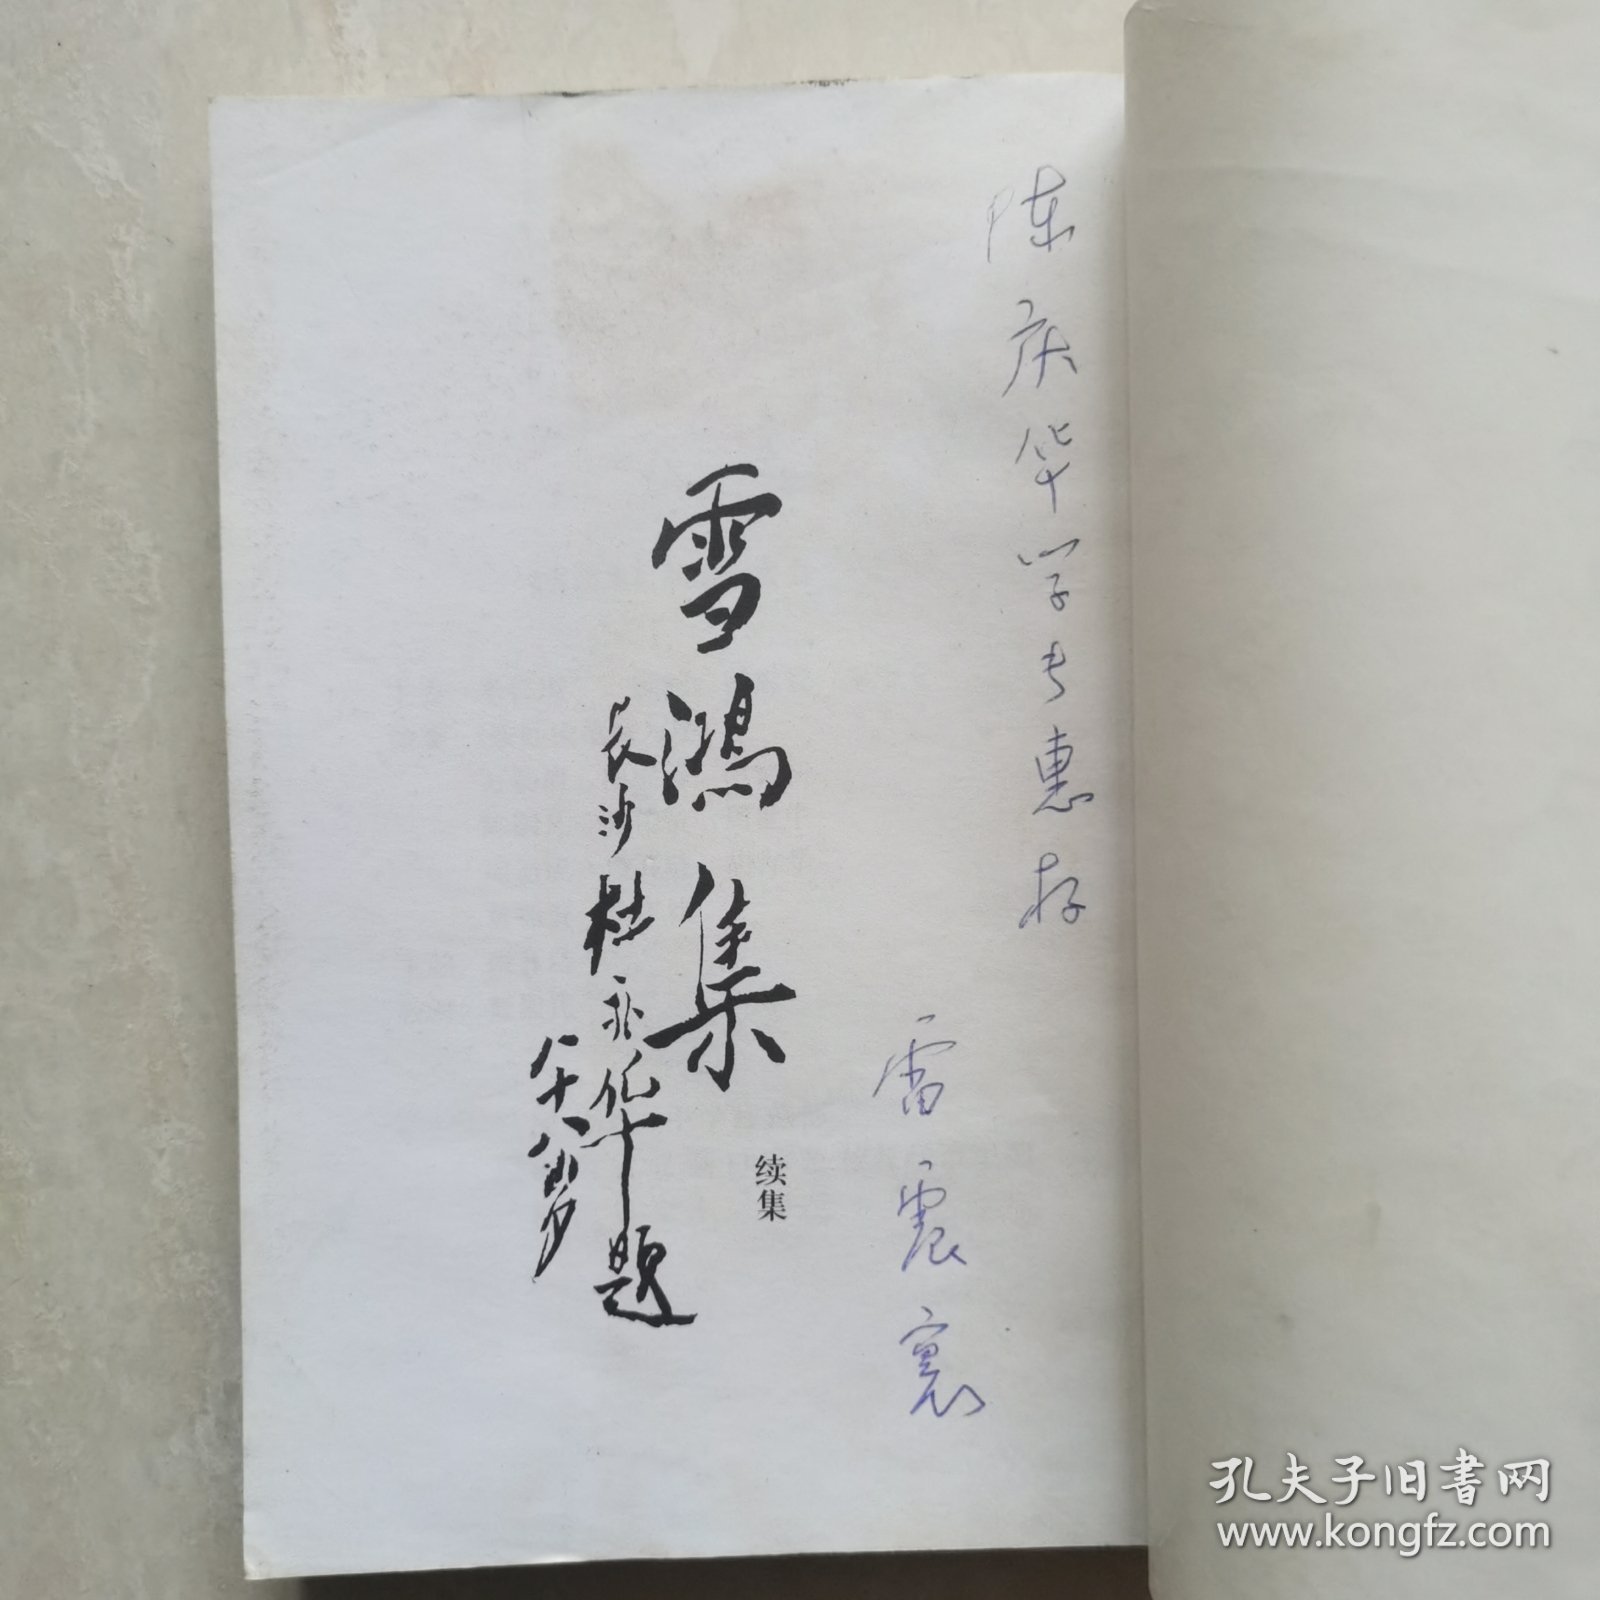 陈庆华学长惠存
雷震寰
雪鸿集
续集
长沙杜亦华题
八十八岁
孔夫子旧书网
www.kongfz.com